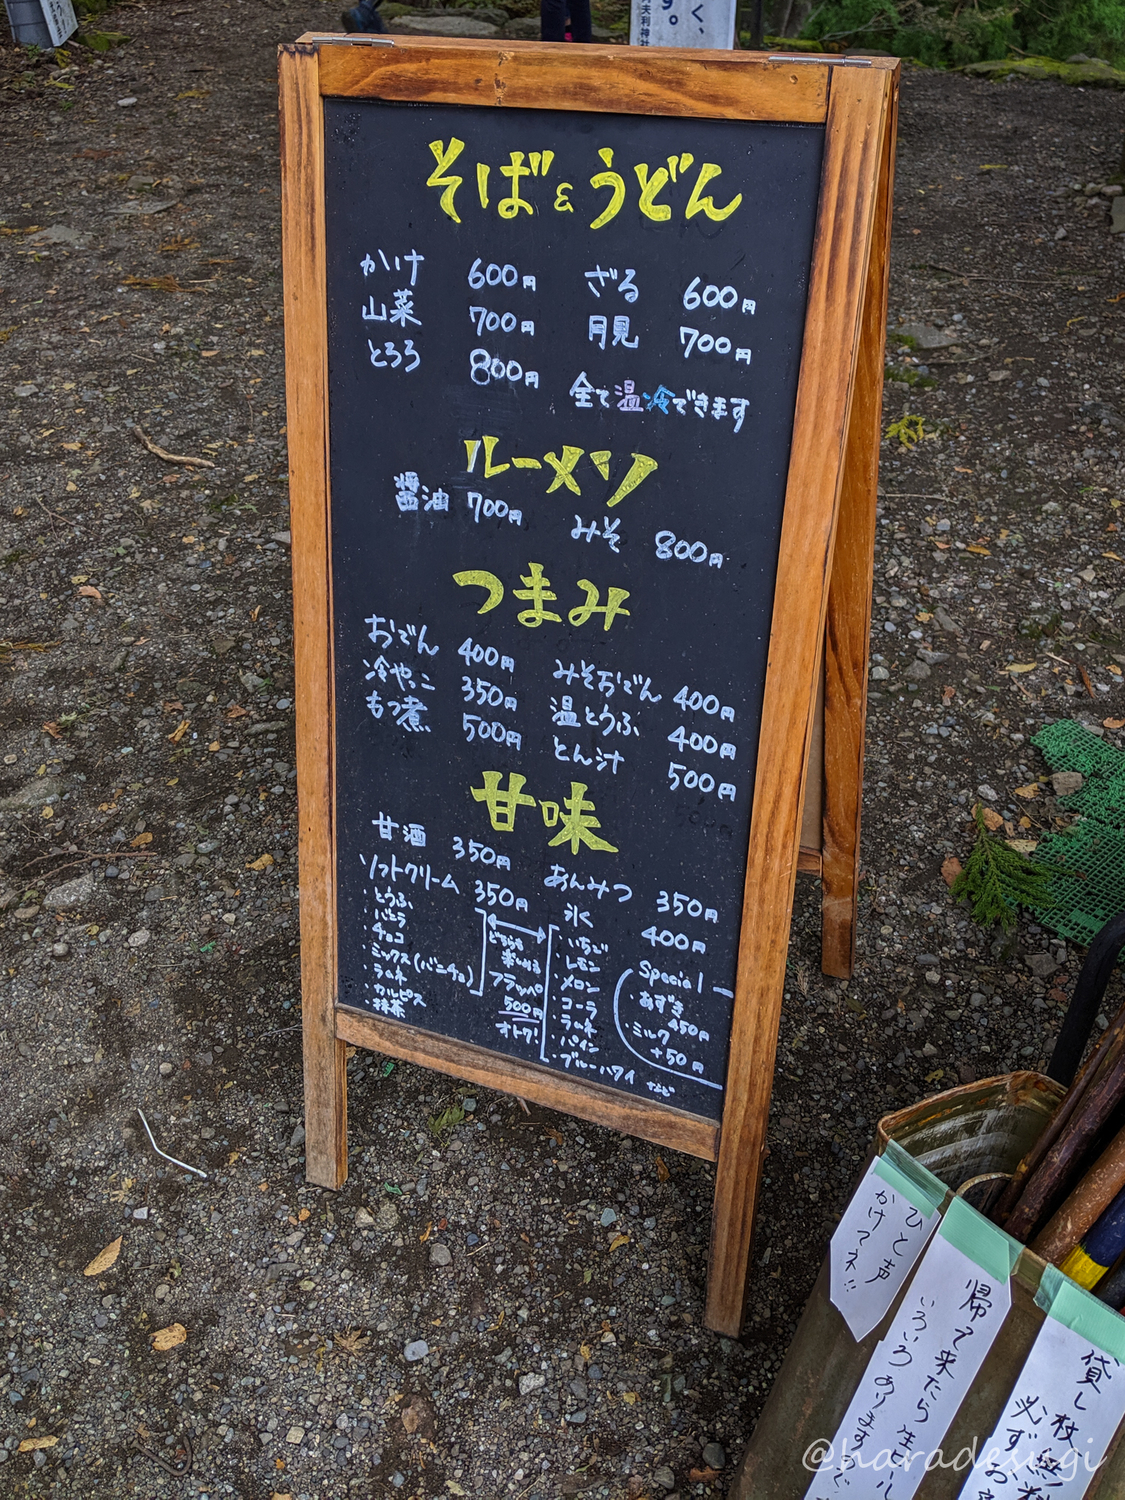 そば&うどん
かけ 600円 ざる 600円
山菜 700円 月見 700円
とろろ 800円
全て温・冷できます
ルーメソ
醤油 700円 みそ 800円
つまみ
おでん 400円 みそおでん 400円
冷やっこ 350円 温とうふ 400円
もつ煮 500円 とん汁 500円
甘味
甘酒 350円 あんみつ 350円
ソフトクリーム 350円
・とうふ
・バニラ
・チョコ
・ミックス(バニチョ)
・ラムネ
・カルピス
・抹茶
どちらも
楽しめる
フラッペ
500円
オトク!
氷 400円
・いちご
・レモン
・メロン
・コーラ
・ラムネ
・パイン
・ブルーハワイ など
Special
・あずき
450円
・ミルク
+50円
ひと声
かけてネ!!
帰って来たら
いろいろあります
貸し杖無料
必ずお
夫利神社
@haradesugi